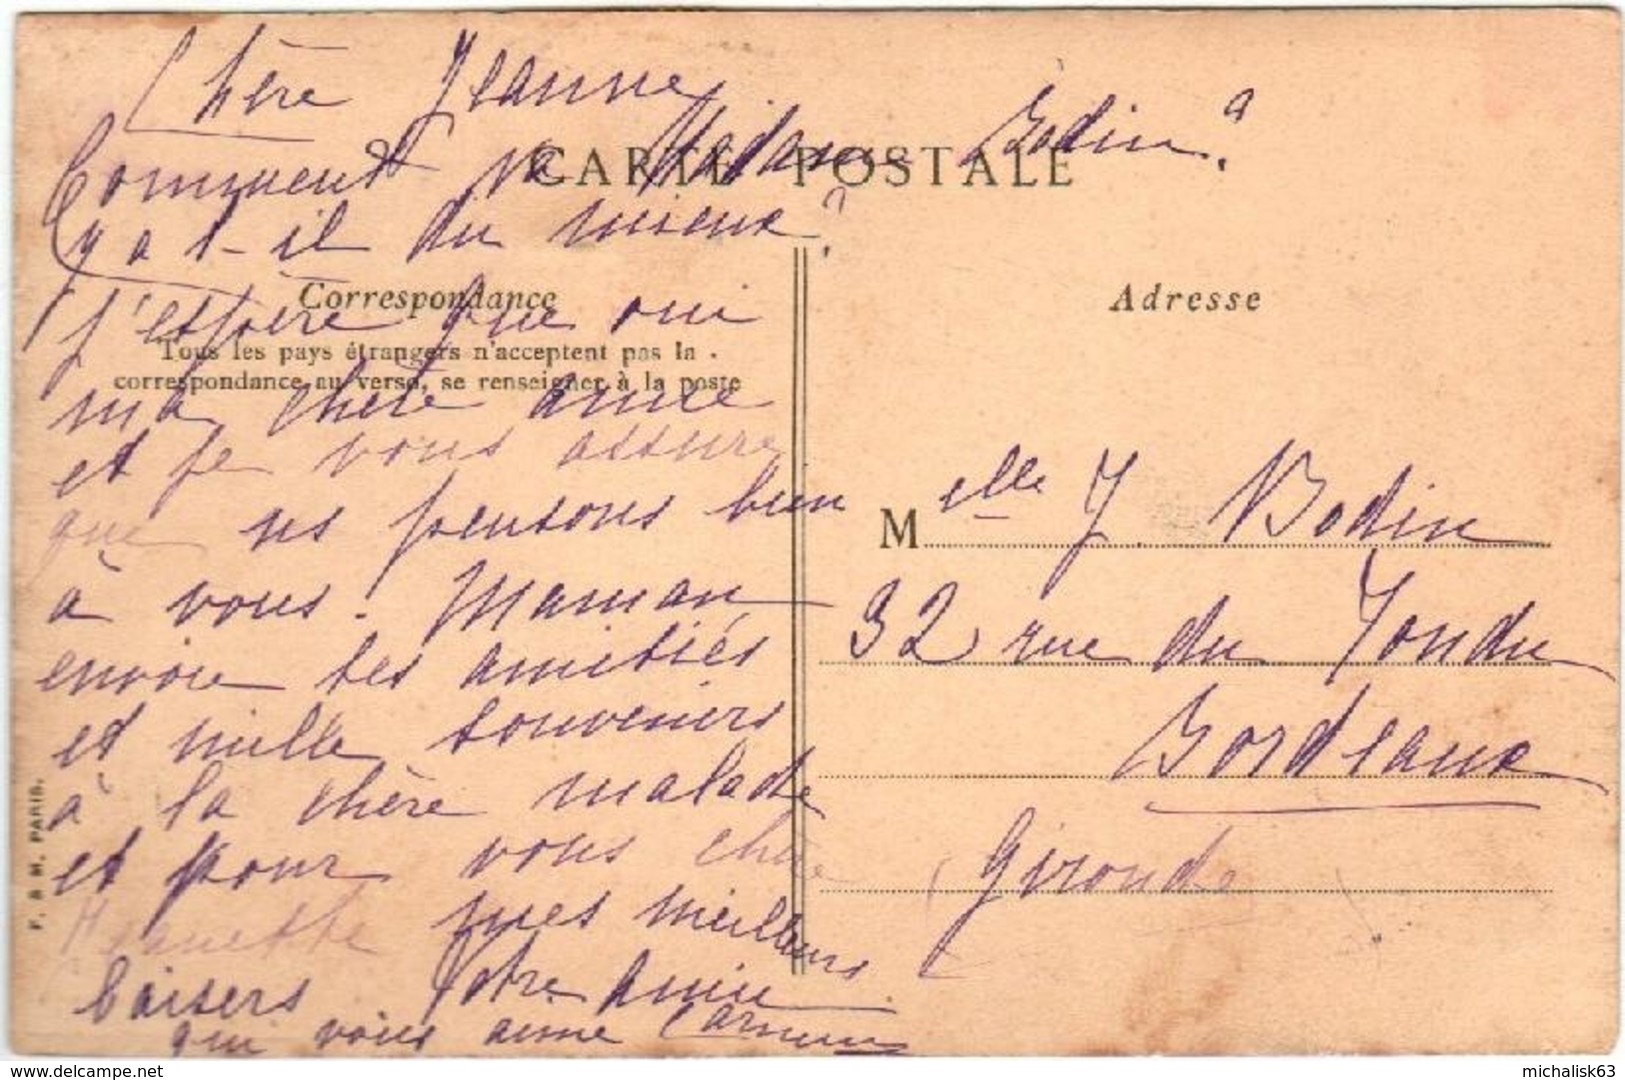 Chère Jeanne
Comment va Madame Bodin?
CARTE POSTALE
y a t-il du mieux?
Correspondance
j'espère que oui
Tous les pays étrangers n'acceptent pas la
correspondance au verso, se renseigner à la poste
ma chère amie
et je vous assure
que ns pensons bien
à vous. Maman
envoie ses amitiés
et mille souvenirs
à la chère malade
et pour vous chère
Jeannette mes meilleurs
baisers Votre amie
qui vous aime Carmen
F. & M. PARIS.
Adresse
Melle J Bodin
32 rue du Tondu
Bordeaux
Gironde
delcampe.net
michalisk63